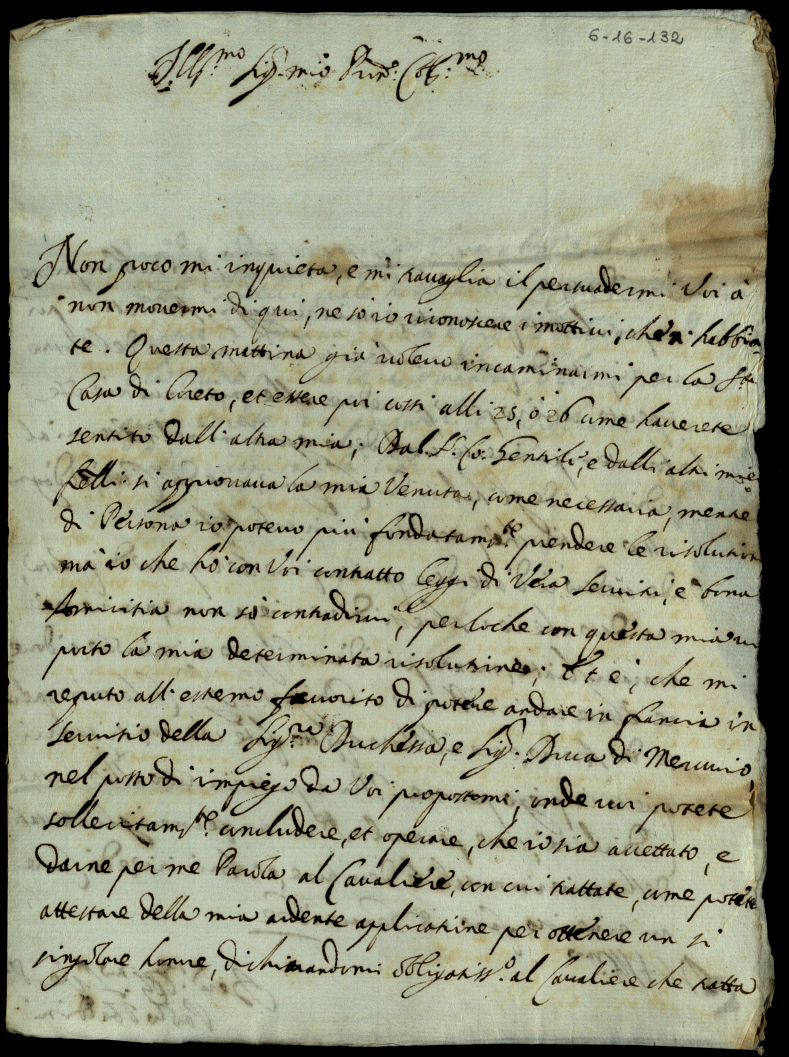 6-16-132
Ill.mo Sig. mio Pron. Col.mo
Non poco mi inquieta, e mi travaglia il persuadermi Voi à
non movermi di qui, ne sò io riconoscere i mottivi, che n' habbia-
te. Questa mattina già volevo incaminarmi per la S.ta
Casa di Loreto, et essere poi costi alli 25, ò 26 come haverete
sentito dall' altra mia; Dal S. Co: Gentili, e dalli altri miei
si approvava la mia Venuta, come necessaria, mentre
di Persona io potevo più fondatam.te prendere le risolutioni
mà io che hò con Voi contratto leggi di Vera servitù, e bona
Amicitia non sò contradirvi, perloche con questa mia vi
porto la mia determinata risolutione; Et è, che mi
reputo all' estremo favorito di potere andare in Francia in
servitio della Sig.ra Duchessa, e Sig. Duca di
nel posto di impiego da Voi propostomi, onde voi potete
sollecitam.te concludere, et operare, che io sia accettato, e
darne per me Parola al Cavaliere, con cui trattate, come potete
attestare della mia ardente applicatione per ottenere un si
singolare honore, dichiarandomi obligatiss.o al Cavaliere che tratta